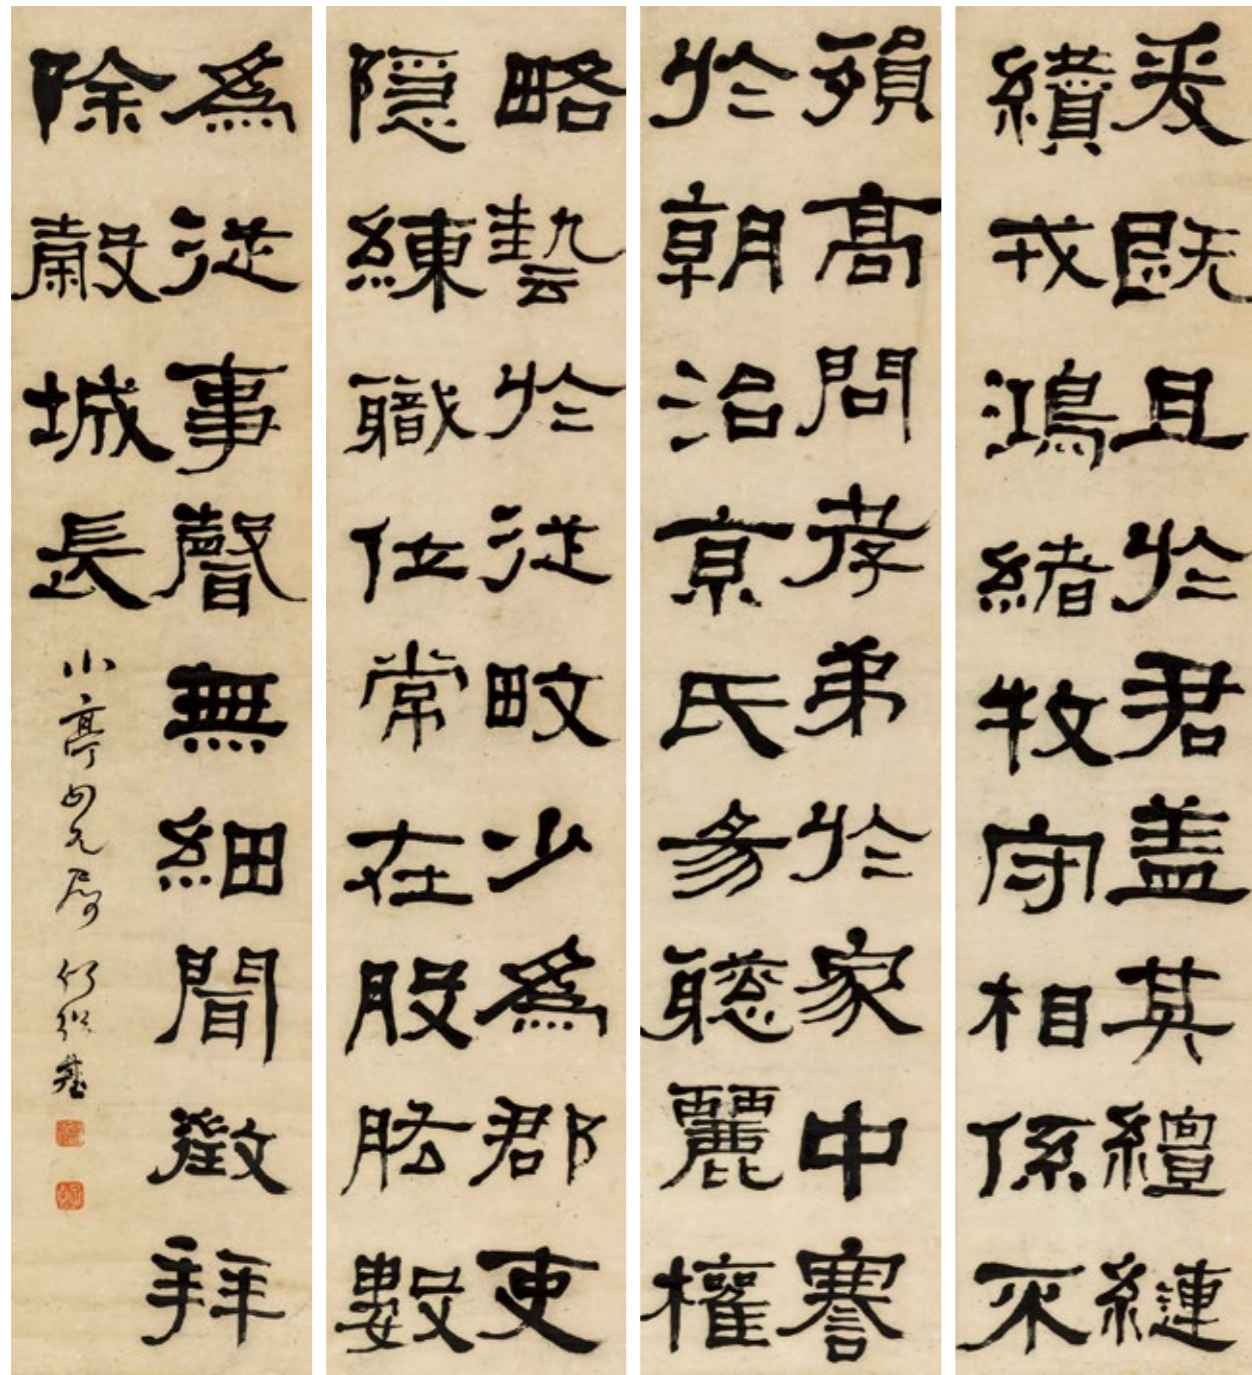 爰既且於君盖其繵縺
纘戎鴻緒牧守相係不
殞高問孝弟於家中謇
於朝治京氏易聰麗權
略藝於從畋少爲郡吏
隱練職位常在股肱數
爲從事聲無細聞徵拜
除穀城長
小亭如兄屬 何紹基